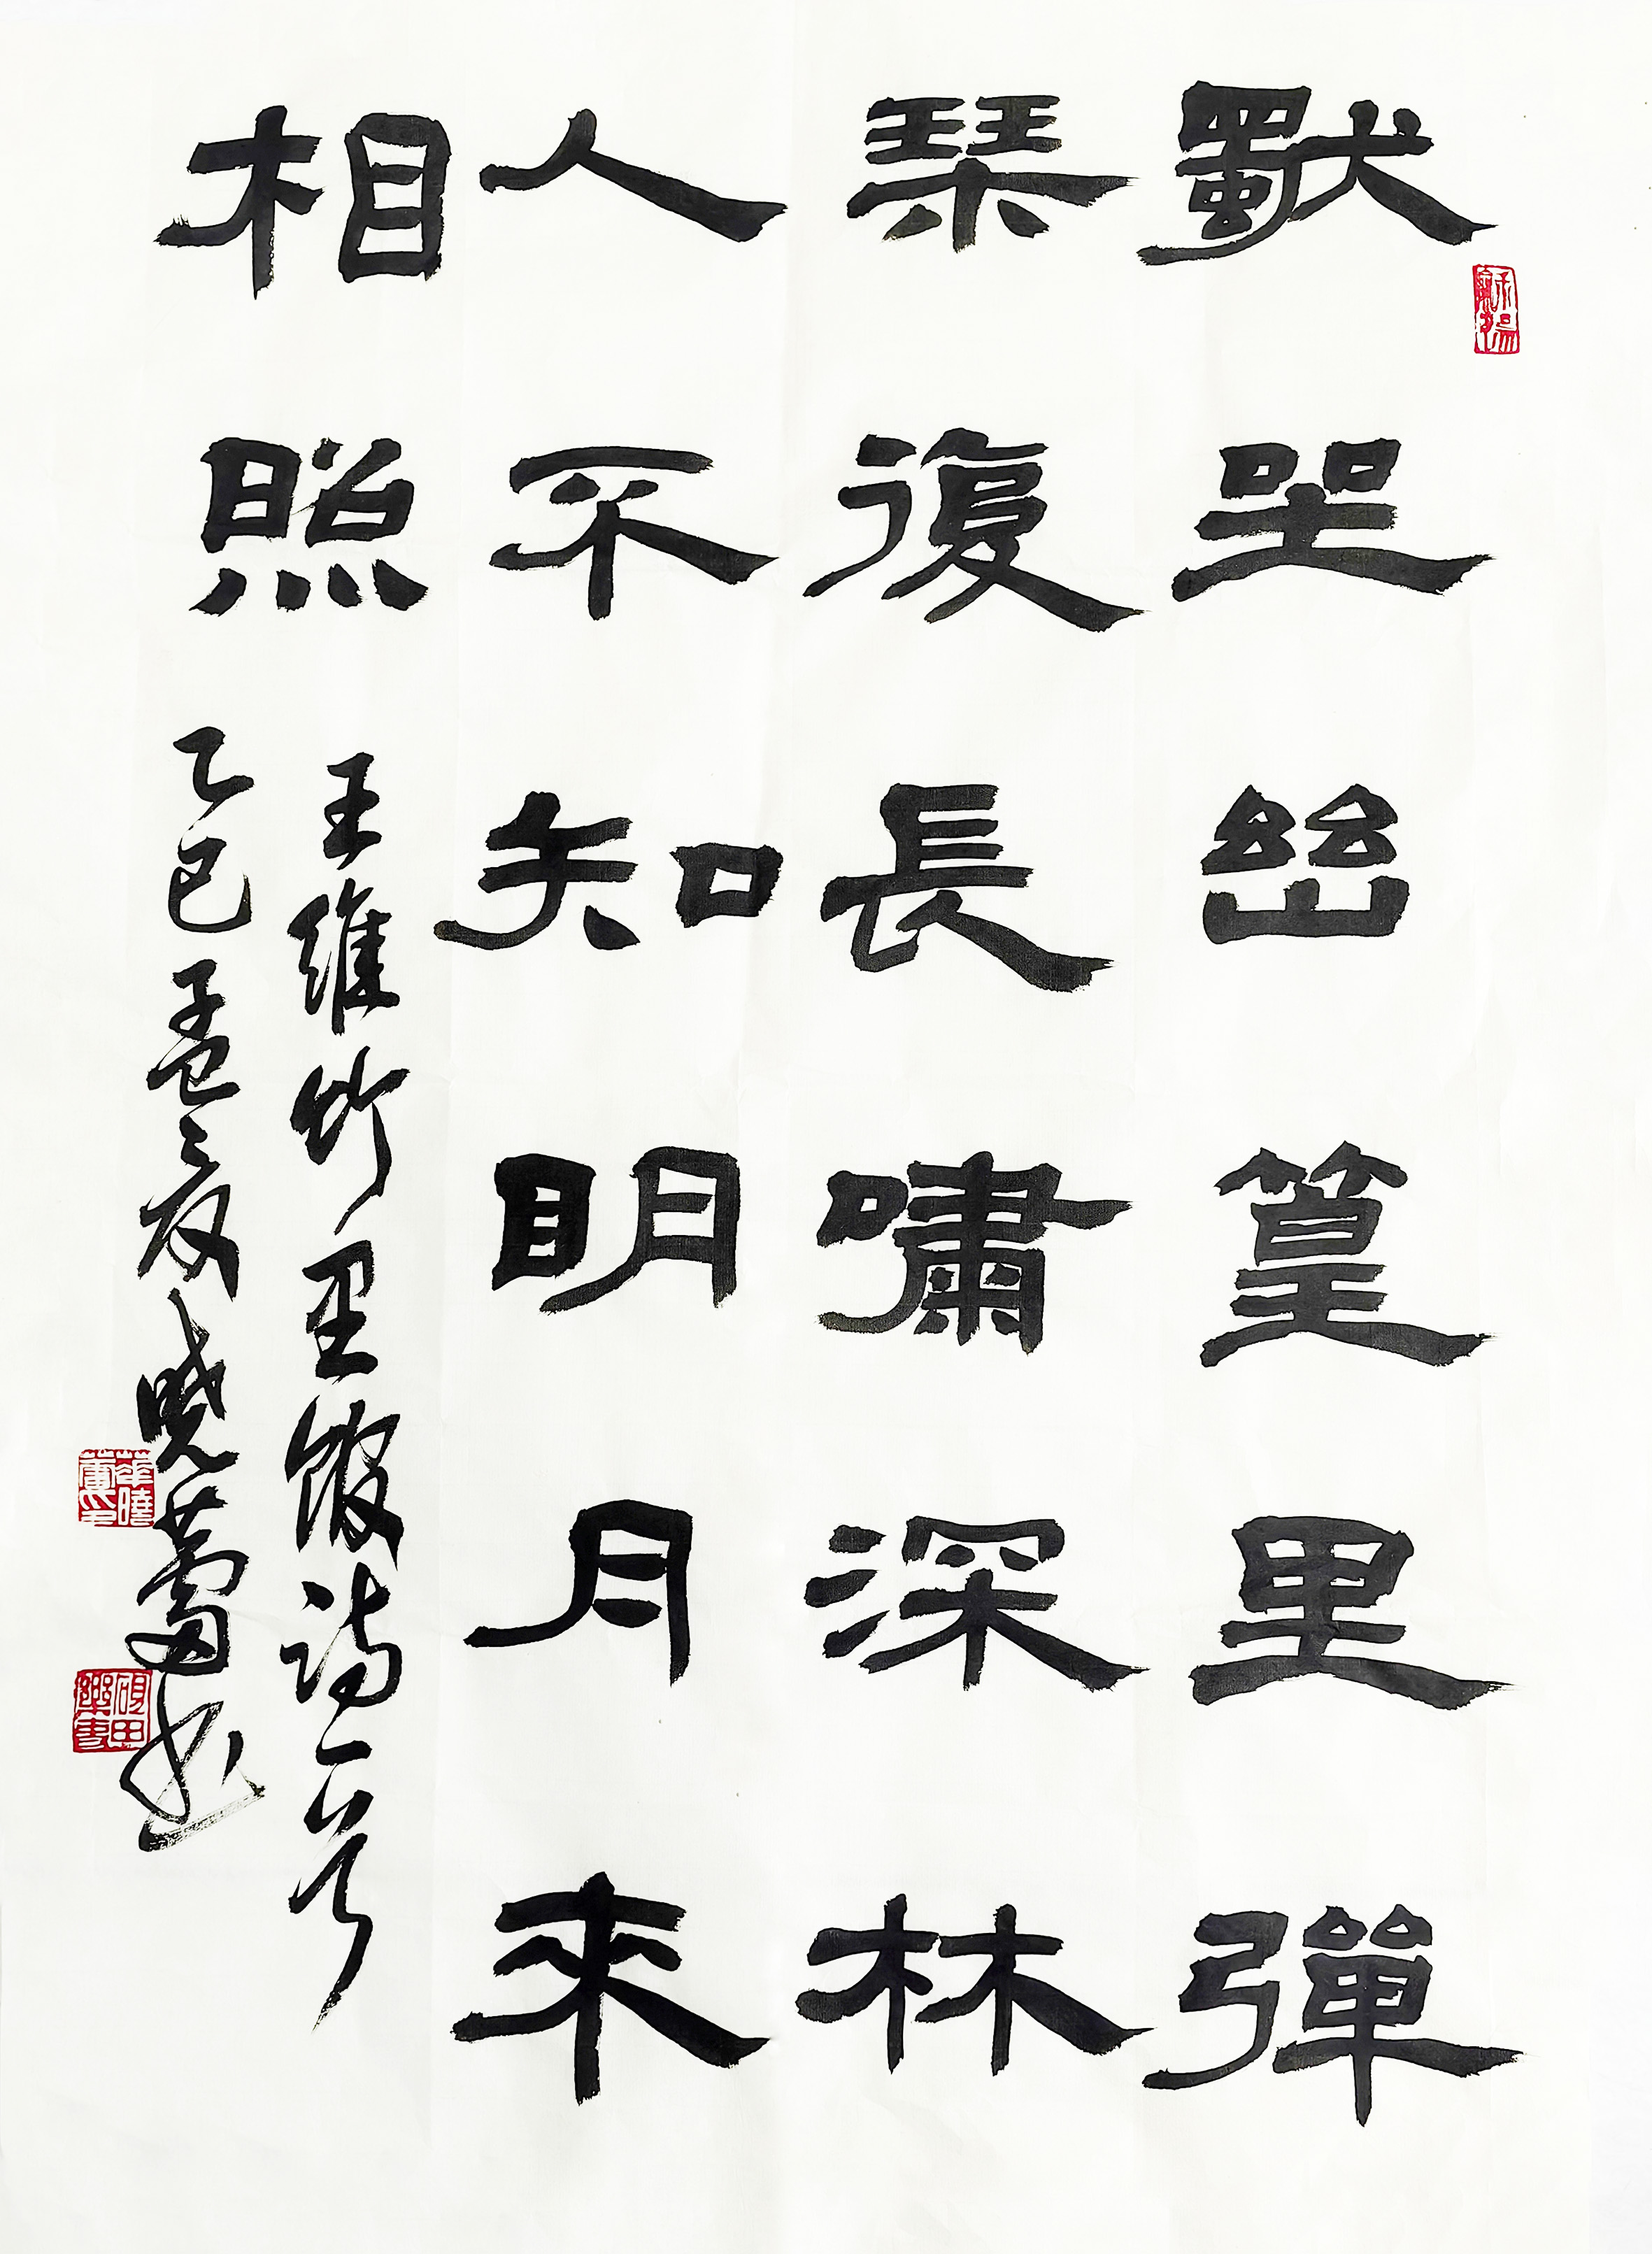 獨坐幽篁里彈
琴復長嘯深林
人不知明月來
相照
王維竹里館詩一首
乙巳孟夏曉蕾书